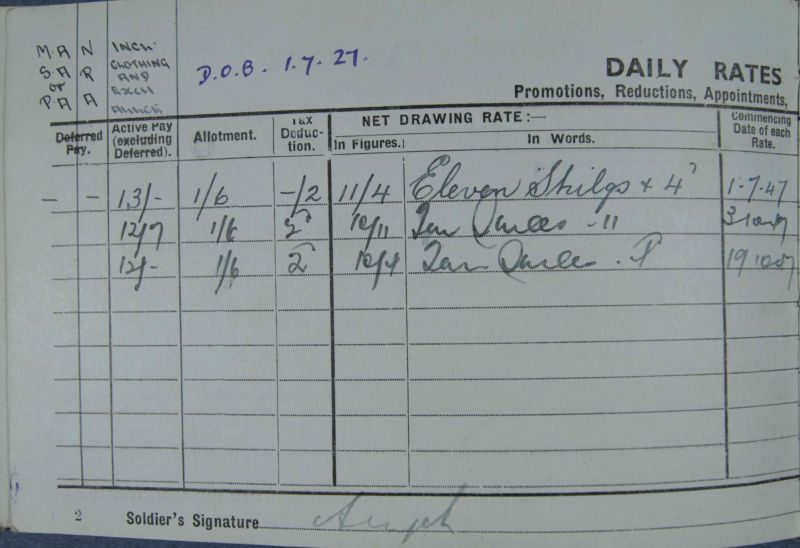 M.A N INCL:
S.A R CLOTHING
or AND
P.A A EXCH
D.O.B. 1.7.27.
DAILY RATES
Promotions, Reductions, Appointments,
Deferred Pay. Active Pay (excluding Deferred). Allotment. Tax Deduction. NET DRAWING RATE:— In Figures. In Words. Commencing Date of each Rate.
— — 13/- 1/6 -/2 11/4 Eleven Shilgs & 4 1-7-47
12/7 1/6 2 10/11 Ten -11
12/- 1/6 2 Ten
2 Soldier's Signature